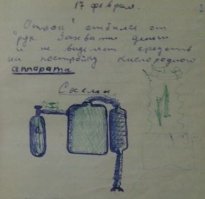 17 февраля.
отбился от
рук. Захватил деньги
и не видели средств
на постройку кислородной
аппарата
Схема